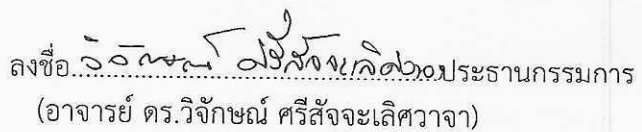 ลงชื่อ วิจักษณ์ ศรีสัจจะเลิศวาจา ประธานกรรมการ
(อาจารย์ ดร.วิจักษณ์ ศรีสัจจะเลิศวาจา)